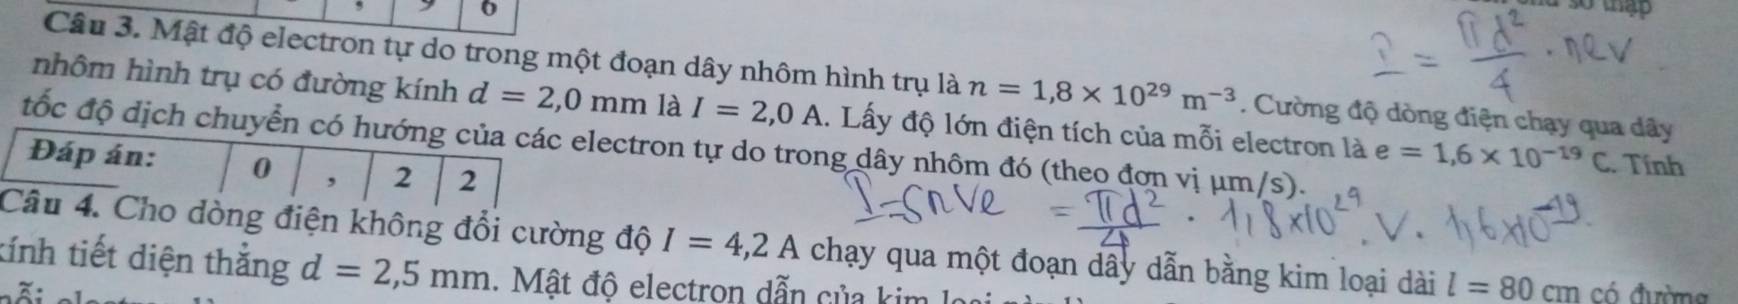 6
Câu 3. Mật độ electron tự do trong một đoạn dây nhôm hình trụ là n = 1,8 × 10²⁹ m⁻³. Cường độ dòng điện chạy qua dây
I = πd²/4 . nev
nhôm hình trụ có đường kính d = 2,0 mm là I = 2,0 A. Lấy độ lớn điện tích của mỗi electron là e = 1,6 × 10⁻¹⁹ C. Tính
tốc độ dịch chuyển có hướng của các electron tự do trong dây nhôm đó (theo đơn vị μm/s).
Đáp án: 0 , 2 2
I = Snve = πd²/4 . 1,8×10²⁹ . v . 1,6×10⁻¹⁹.
Câu 4. Cho dòng điện không đổi cường độ I = 4,2 A chạy qua một đoạn dây dẫn bằng kim loại dài l = 80 cm có đường
kính tiết diện thẳng d = 2,5 mm. Mật độ electron dẫn của kim loại